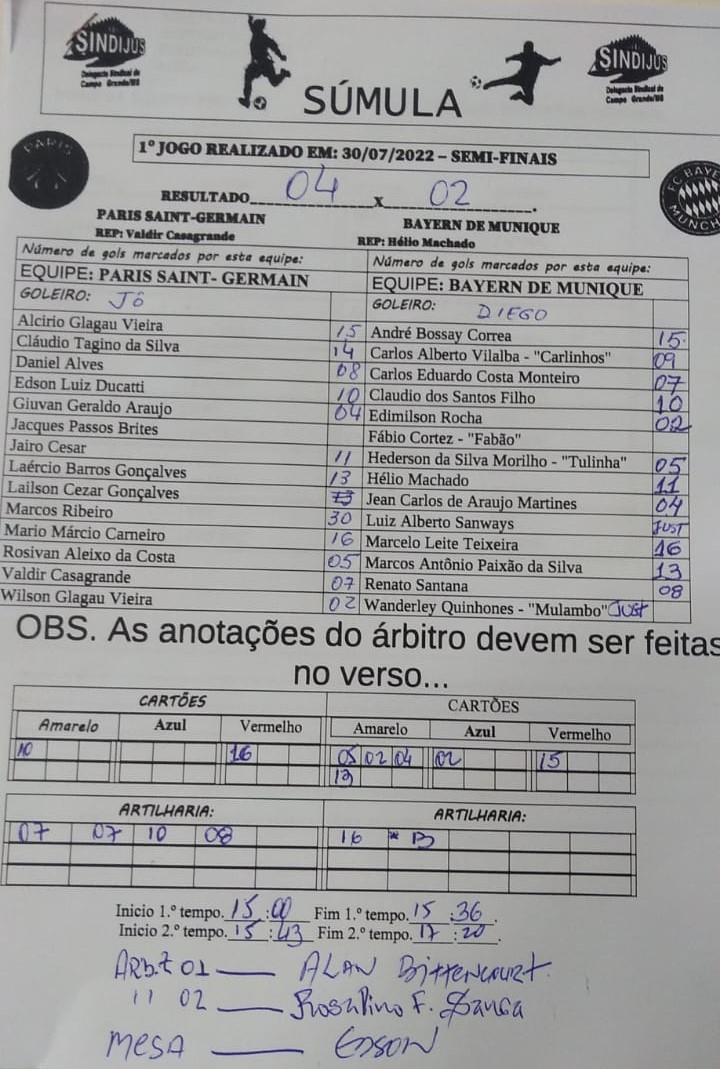 SINDIJUS
Delegacia Sindical de
Campo Grande/MS
SINDIJUS
Delegacia Sindical de
Campo Grande/MS
SÚMULA
PARIS
FC BAYE
MÜNCH
1º JOGO REALIZADO EM: 30/07/2022 – SEMI-FINAIS
RESULTADO 04 x 02.
PARIS SAINT-GERMAIN BAYERN DE MUNIQUE
REP: Valdir Casagrande REP: Hélio Machado
Número de gols marcados por esta equipe: Número de gols marcados por esta equipe:
EQUIPE: PARIS SAINT- GERMAIN EQUIPE: BAYERN DE MUNIQUE
GOLEIRO: JÔ GOLEIRO: DIEGO
Alcirio Glagau Vieira 15 André Bossay Correa 15
Cláudio Tagino da Silva 14 Carlos Alberto Vilalba - "Carlinhos" 09
Daniel Alves 08 Carlos Eduardo Costa Monteiro 07
Edson Luiz Ducatti 10 Claudio dos Santos Filho 10
Giuvan Geraldo Araujo 04 Edimilson Rocha 02
Jacques Passos Brites Fábio Cortez - "Fabão"
Jairo Cesar 11 Hederson da Silva Morilho - "Tulinha" 05
Laércio Barros Gonçalves 13 Hélio Machado 11
Lailson Cezar Gonçalves Jean Carlos de Araujo Martines 04
Marcos Ribeiro 30 Luiz Alberto Sanways JUST
Mario Márcio Carneiro 16 Marcelo Leite Teixeira 16
Rosivan Aleixo da Costa 05 Marcos Antônio Paixão da Silva 13
Valdir Casagrande 07 Renato Santana 08
Wilson Glagau Vieira 02 Wanderley Quinhones - "Mulambo" Just
OBS. As anotações do árbitro devem ser feitas
no verso...
CARTÕES CARTÕES
Amarelo Azul Vermelho Amarelo Azul Vermelho
10 16 05 02 04 02 15
13
ARTILHARIA: ARTILHARIA:
07 07 10 08 16 * 13
Inicio 1.º tempo. 15 :00 Fim 1.º tempo. 15 :36.
Inicio 2.º tempo. 15 :43 Fim 2.º tempo. 17 :20.
ARB.t 01 — ALAN BITTENCOURT.
11 02 — Rosalino F.
MESA — EDSON